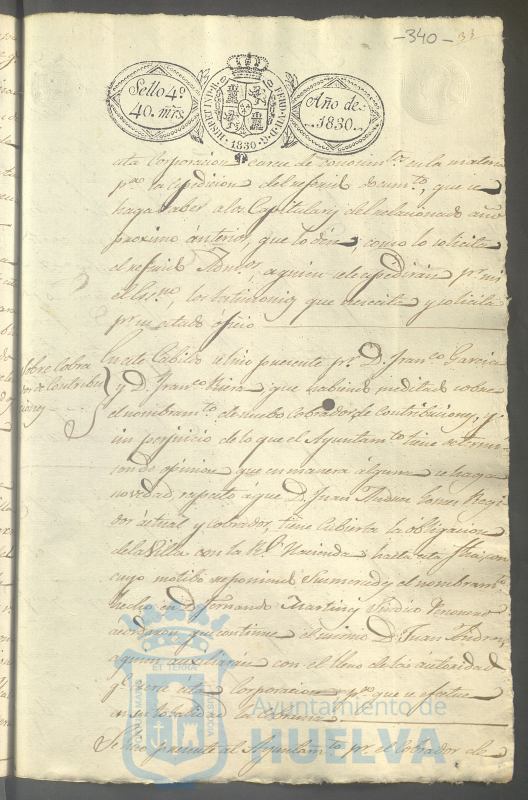 -340-
Sello 4º
40. mrs.
HISP. ET IND. R. FERD. VII. D. G. 1830
Año de
1830.
esta Corporacion carece de conocimto. en la materia
pa. la expedicion del referido documto., que se
haga saber a los Capitulares del relacionado año
proximo ánterior, que lo dén, como lo solicita
el referido Dandos, a quien se le expedirán pr. mi
el Essno. los testimonios que necesita y solicita
pr. su citado óficio
Sobre Cobra
dor de Contribu
ciones
En este Cabildo se hizo presente pr. D. Franco. Garcia
y D. Franco. Riera que habiendo meditado sobre
el nombramto. de nuebo Cobrador de Contribuciones, y
sin perjuicio de lo que el Ayuntamto. tiene determi
son de opinion que en manera álguna se haga
novedad respecto á que D. Juan Andres Regi
dor áctual y Cobrador, tiene Cubierta la obligacion
de la Villa con la Rl. Hacienda hasta esta
cuyo motibo reponiendo Sus mercedes el nombramto.
hecho en D. Fernando Martinez Sindico Personero
acordaron que continue el mismo D. Juan Andres
a quien auxiliarán con el lleno de las áutoridad
qe. tiene ésta Corporacion pa. que se efectue
en su totalidad la Cobranza
Se hizo presente al Ayuntamto. pr. el Cobrador de
Ayuntamiento de
HUELVA